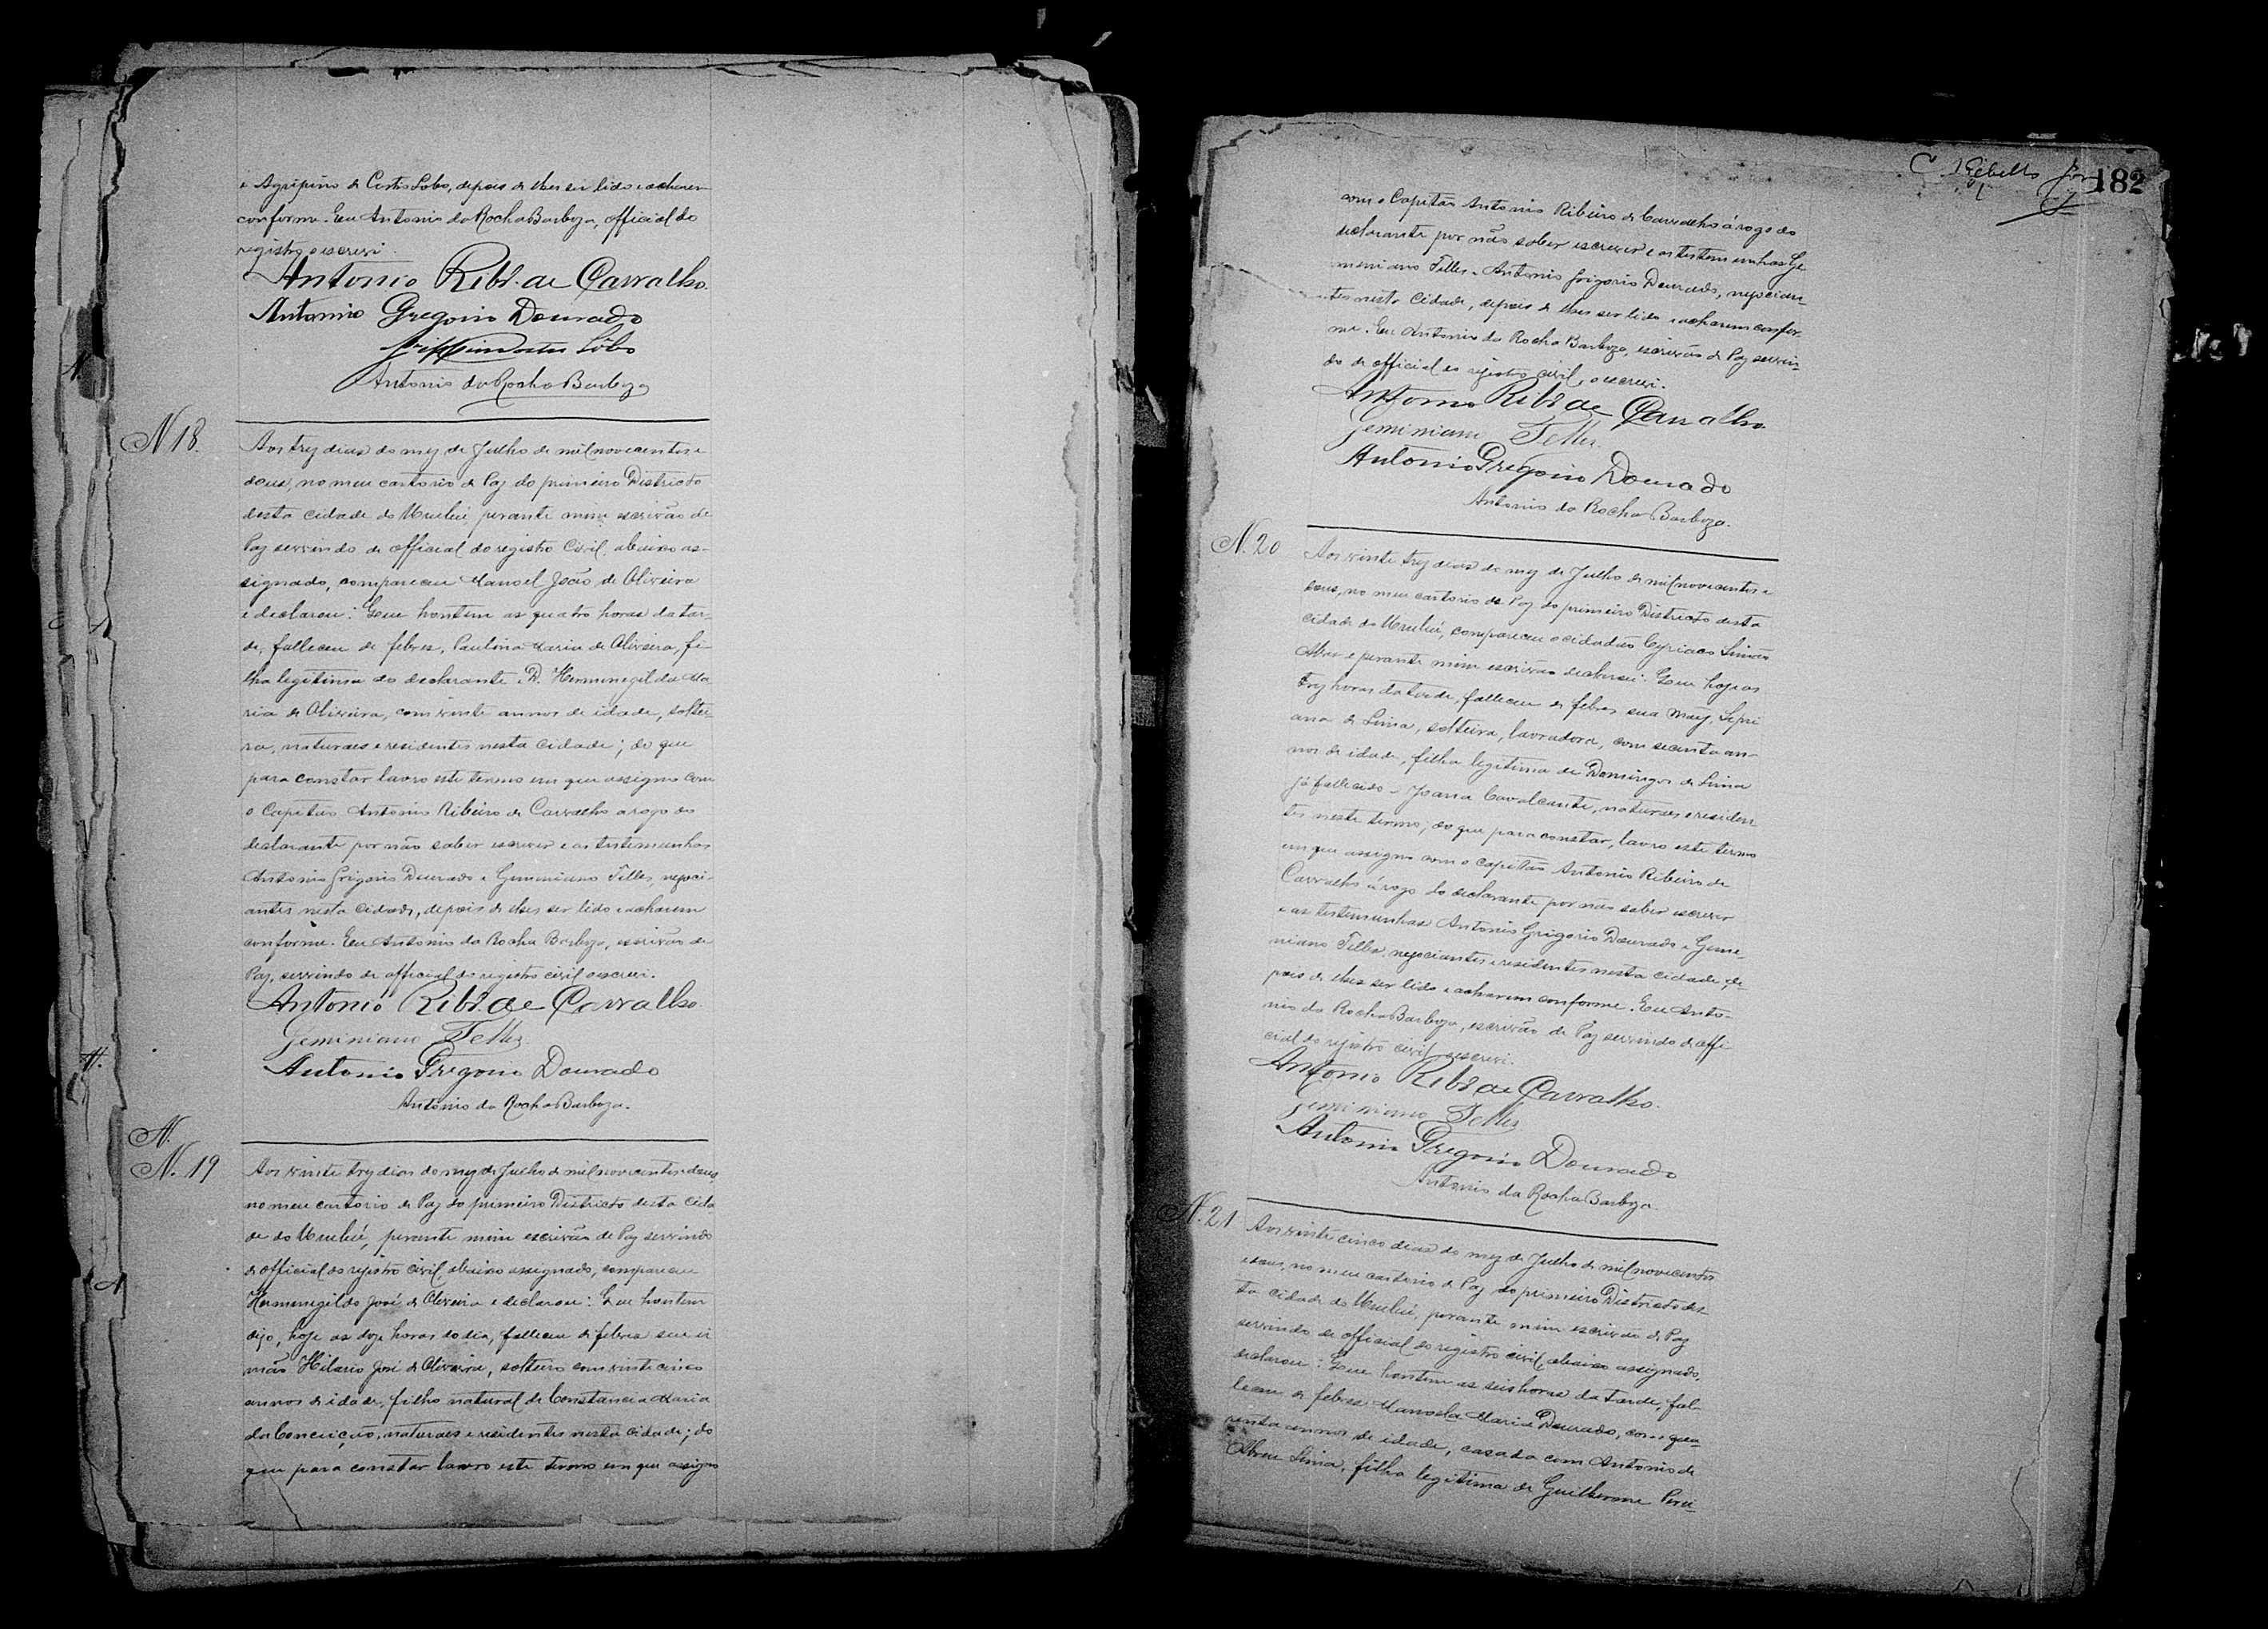 e Agripino de Castro Lobo, depois de lhes ser lido e acharem
conforme. Eu Antonio da Rocha Barboza, official do
registro o escrevi.
Antonio Ribr. de Carvalho.
Antonio Gregorio Dourado
Lôbo
Antonio da Rocha Barboza
N 18.
Aos trez dias do mez de Julho de mil novecentos e
dous, no meu cartorio de Paz do primeiro Districto
desta cidade do Urubú, perante mim escrivão de
Paz servindo de official do registro Civil, abaixo as-
signado, compareceu Manoel João de Oliveira
e declarou: Que hontem as quatro horas da tar-
de, falleceu de febres, Paulina Maria de Oliveira, fi-
lha legitima do declarante e D. Hermenegilda Ma
ria de Oliveira, com vinte annos de idade, soltei-
ra, naturaes e residentes nesta cidade; do que
para constar lavro este termo em que assigno com
o Capitão Antonio Ribeiro de Carvalho a rogo do
declarante por não saber escrever e as testemunhas
Antonio Grigorio Dourado e Geminiano Telles, negoci-
antes nesta cidade, depois de lhes ser lido e acharem
conforme. Eu Antonio da Rocha Barboza, escrivão de
Paz, servindo de official do registro civil o escrevi.
Antonio Ribr. de Carvalho.
Geminiano Telles
Antonio Gregorio Dourado
Antonio da Rocha Barboza.
N.
N. 19
Aos vinte trez dias do mez de Julho de mil novecentos e dous,
no meu cartorio de Paz do primeiro Districto desta cida
de do Urubú, perante mim escrivão de Paz servindo
de official do registro civil, abaixo assignado, compareceu
Hermenegildo José de Oliveira e declarou: Que hontem
digo, hoje as doze horas do dia, falleceu de febres seu ir
mão Hilario José de Oliveira, solteiro com vinte cinco
annos de idade, filho natural de Constancia Maria
da Conceição, naturaes e residentes nesta cidade; do
que para constar lavro este termo em que assigno
C. Rebello
182
com o Capitão Antonio Ribeiro de Carvalho á rogo do
declarante por não saber escrever e as testemunhas Ge
miniano Telles e Antonio Grigorio Dourado, negocian-
tes nesta Cidade, depois de lhes ser lido e acharem confor-
me. Eu Antonio da Rocha Barboza, escrivão de Paz servin-
do de official do registro civil, o escrevi.
Antonio Ribr. de Carvalho
Geminiano Telles.
Antonio Gregorio Dourado
Antonio da Rocha Barboza.
N. 20
Aos vinte trez dias do mez de Julho de mil novecentos e
dous, no meu cartorio de Paz do primeiro Districto desta
cidade do Urubú, compareceu o cidadão Cypriaco Simões
e perante mim escrivão declarou: Que hoje as
trez horas da tarde, falleceu de febres sua mãy,
ana de Lima, solteira, lavradora, com secenta an-
nos de idade, filha legitima de Domingos de Lima
já fallecido e Joana Cavalcante, naturaes e residen
tes neste termo, do que para constar, lavro este termo
em que assigno com o capitão Antonio Ribeiro de
Carvalho á rogo do declarante por não saber escrever
e as testemunhas Antonio Grigorio Dourado e Gemi-
niano Telles, negociantes e residentes nesta cidade, de-
pois de lhes ser lido e acharem conforme. Eu Anto-
nio da Rocha Barboza, escrivão de Paz servindo de offi
cial do registro civil o escrevi.
Antonio Ribr. de Carvalho.
Geminiano Telles
Antonio Gregorio Dourado
Antonio da Rocha Barboza
N. 21
Aos vinte cinco dias do mez de Julho de mil novecentos
e dous, no meu cartorio de Paz do primeiro Districto des-
ta cidade do Urubú, perante mim escrivão de Paz
servindo de official do registro civil, abaixo assignado,
declarou: Que hontem as seis horas da tarde, fal-
leceu de febres Manoela Maria Dourado, com qua-
renta annos de idade, casada com Antonio de
Abreu Lima, filha legitima de Guilherme Perei-